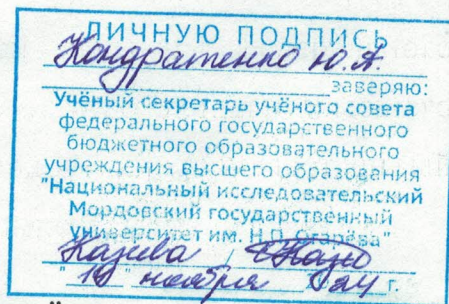 ЛИЧНУЮ ПОДПИСЬ
Кондратенко Ю.А.
заверяю:
Учёный секретарь учёного совета
федерального государственного
бюджетного образовательного
учреждения высшего образования
"Национальный исследовательский
Мордовский государственный
университет им. Н.П. Огарёва"
" ноября 24 г.